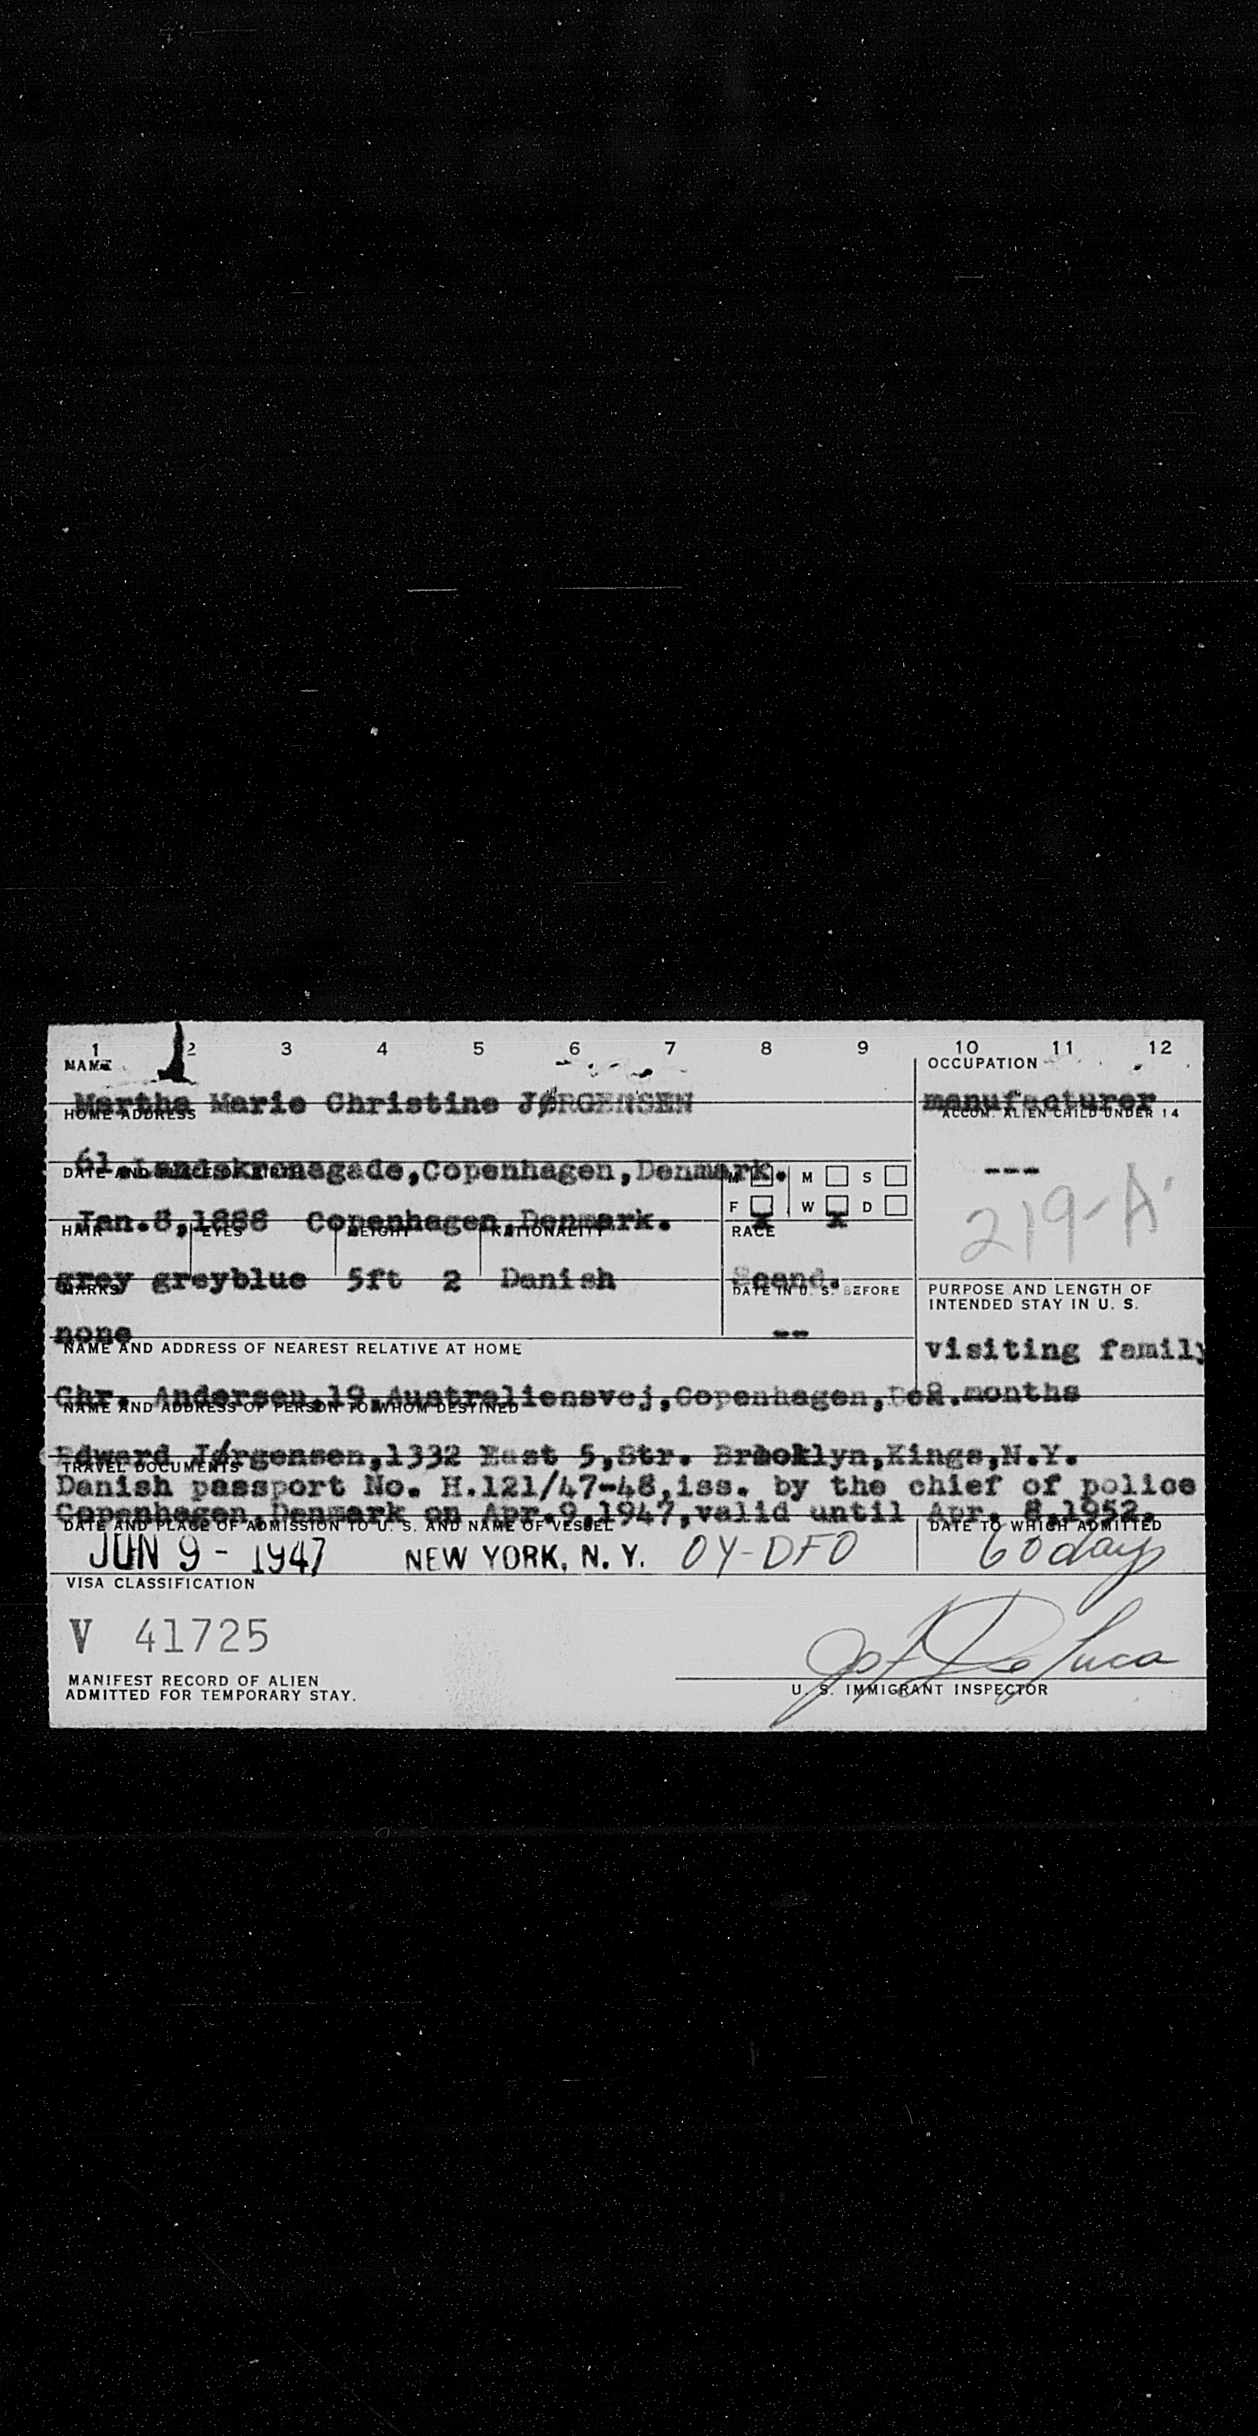 1 2 3 4 5 6 7 8 9 10 11 12
NAME
OCCUPATION
Martha Marie Christine JØRGENSEN
manufacturer
HOME ADDRESS
ACCOM. ALIEN CHILD UNDER 14
61, Landskronagade, Copenhagen, Denmark.
---
DATE AND PLACE OF BIRTH
M M S
F W D
x x
219-A
Jan.8,1888 Copenhagen, Denmark.
HAIR EYES HEIGHT NATIONALITY RACE
grey greyblue 5ft 2 Danish Scand.
MARKS
DATE IN U. S. BEFORE
PURPOSE AND LENGTH OF
INTENDED STAY IN U. S.
none
--
visiting family
NAME AND ADDRESS OF NEAREST RELATIVE AT HOME
Chr. Andersen,19,Australiensvej,Copenhagen, 2.months
NAME AND ADDRESS OF PERSON TO WHOM DESTINED
Edward Jørgensen,1332 East 5,Str. Brooklyn,Kings,N.Y.
TRAVEL DOCUMENTS
Danish passport No. H.121/47-48,iss. by the chief of police
Copenhagen,Denmark on Apr.9,1947,valid until Apr. 8,1952.
DATE AND PLACE OF ADMISSION TO U. S. AND NAME OF VESSEL
DATE TO WHICH ADMITTED
JUN 9 - 1947 NEW YORK, N. Y. OY-DFO 60 days
VISA CLASSIFICATION
V 41725
Jos De Luca
MANIFEST RECORD OF ALIEN
ADMITTED FOR TEMPORARY STAY.
U. S. IMMIGRANT INSPECTOR